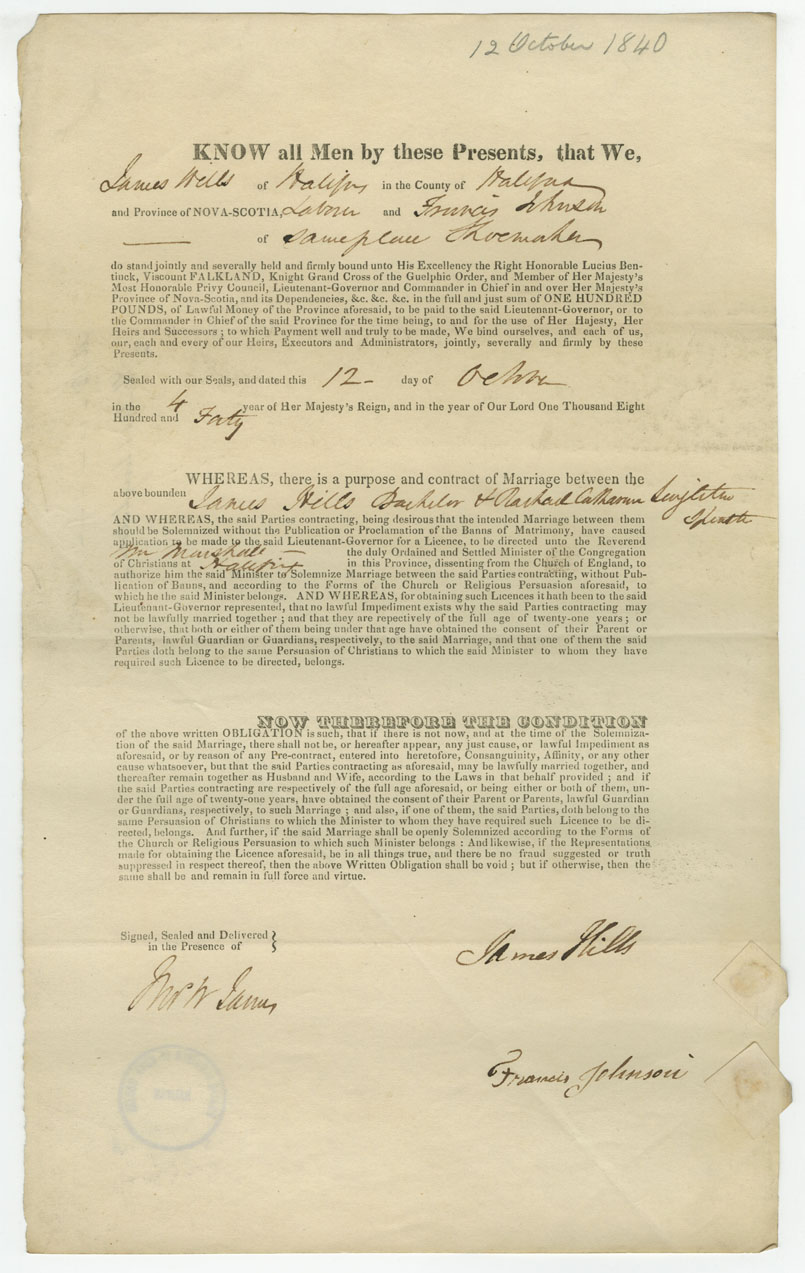 12 October 1840
KNOW all Men by these Presents, that We,
James Hills of Halifax in the County of Halifax
and Province of NOVA-SCOTIA, Laborer and Francis Johnson
of same place Shoemaker
do stand jointly and severally held and firmly bound unto His Excellency the Right Honorable Lucius Ben-
tinck, Viscount FALKLAND, Knight Grand Cross of the Guelphic Order, and Member of Her Majesty's
Most Honorable Privy Council, Lieutenant-Governor and Commander in Chief in and over Her Majesty's
Province of Nova-Scotia, and its Dependencies, &c. &c. &c. in the full and just sum of ONE HUNDRED
POUNDS, of Lawful Money of the Province aforesaid, to be paid to the said Lieutenant-Governor, or to
the Commander in Chief of the said Province for the time being, to and for the use of Her Hajesty, Her
Heirs and Successors ; to which Payment well and truly to be made, We bind ourselves, and each of us,
our, each and every of our Heirs, Executors and Administrators, jointly, severally and firmly by these
Presents.
Sealed with our Seals, and dated this 12- day of October
in the 4 year of Her Majesty's Reign, and in the year of Our Lord One Thousand Eight
Hundred and Forty
WHEREAS, there is a purpose and contract of Marriage between the
above bounden James Hills Bachelor & Rachael Catharine Singleton
Spinster
AND WHEREAS, the said Parties contracting, being desirous that the intended Marriage between them
should be Solemnized without the Publication or Proclamation of the Banns of Matrimony, have caused
application to be made to the said Lieutenant-Governor for a Licence, to be directed unto the Reverend
Mr Marshall the duly Ordained and Settled Minister of the Congregation
of Christians at Halifax in this Province, dissenting from the Church of England, to
authorize him the said Minister to Solemnize Marriage between the said Parties contracting, without Pub-
lication of Banns, and according to the Forms of the Church or Religious Persuasion aforesaid, to
which he the said Minister belongs. AND WHEREAS, for obtaining such Licences it hath been to the said
Lieutenant-Governor represented, that no lawful Impediment exists why the said Parties contracting may
not be lawfully married together ; and that they are repectively of the full age of twenty-one years ; or
otherwise, that both or either of them being under that age have obtained the consent of their Parent or
Parents, lawful Guardian or Guardians, respectively, to the said Marriage, and that one of them the said
Parties doth belong to the same Persuasion of Christians to which the said Minister to whom they have
required such Licence to be directed, belongs.
NOW THEREFORE THE CONDITION
of the above written OBLIGATION is such, that if there is not now, and at the time of the Solemniza-
tion of the said Marriage, there shall not be, or hereafter appear, any just cause, or lawful Impediment as
aforesaid, or by reason of any Pre-contract, entered into heretofore, Consanguinity, Affinity, or any other
cause whatsoever, but that the said Parties contracting as aforesaid, may be lawfully married together, and
thereafter remain together as Husband and Wife, according to the Laws in that behalf provided ; and if
the said Parties contracting are respectively of the full age aforesaid, or being either or both of them, un-
der the full age of twenty-one years, have obtained the consent of their Parent or Parents, lawful Guardian
or Guardians, respectively, to such Marriage ; and also, if one of them, the said Parties, doth belong to the
same Persuasion of Christians to which the Minister to whom they have required such Licence to be di-
rected, belongs. And further, if the said Marriage shall be openly Solemnized according to the Forms of
the Church or Religious Persuasion to which such Minister belongs : And likewise, if the Representations
made for obtaining the Licence aforesaid, be in all things true, and there be no fraud suggested or truth
suppressed in respect thereof, then the above Written Obligation shall be void ; but if otherwise, then the
same shall be and remain in full force and virtue.
Signed, Sealed and Delivered
in the Presence of
James Hills
Thos W James
Francis Johnson